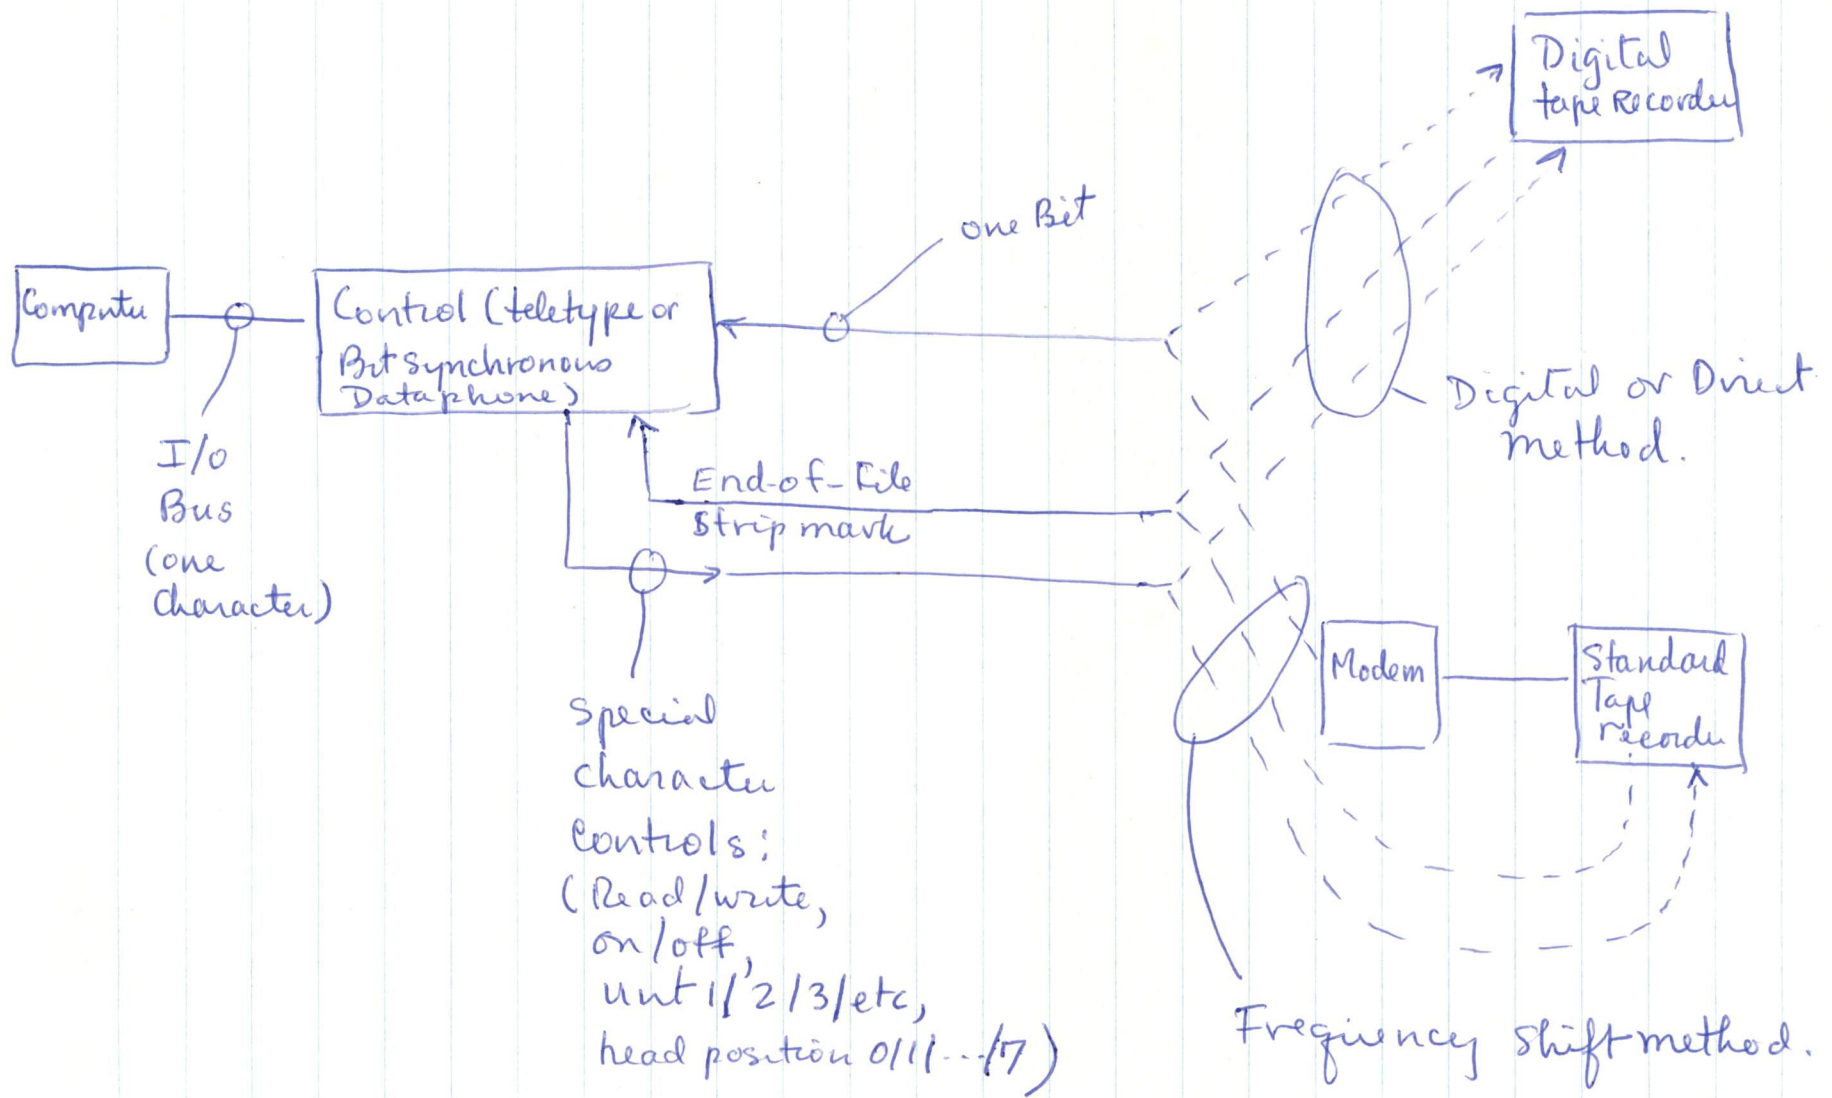 Digital
tape Recorder
one Bit
Computer
Control (teletype or
Bit synchronous
Dataphone)
Digital or Direct
method.
I/O
Bus
(one
Character)
End-of-File
Strip mark
Modem
Standard
Tape
recorder
Special
character
Controls:
(Read/write,
on/off,
unit 1/2/3/etc,
head position 0/1/---/7)
Frequency shift method.